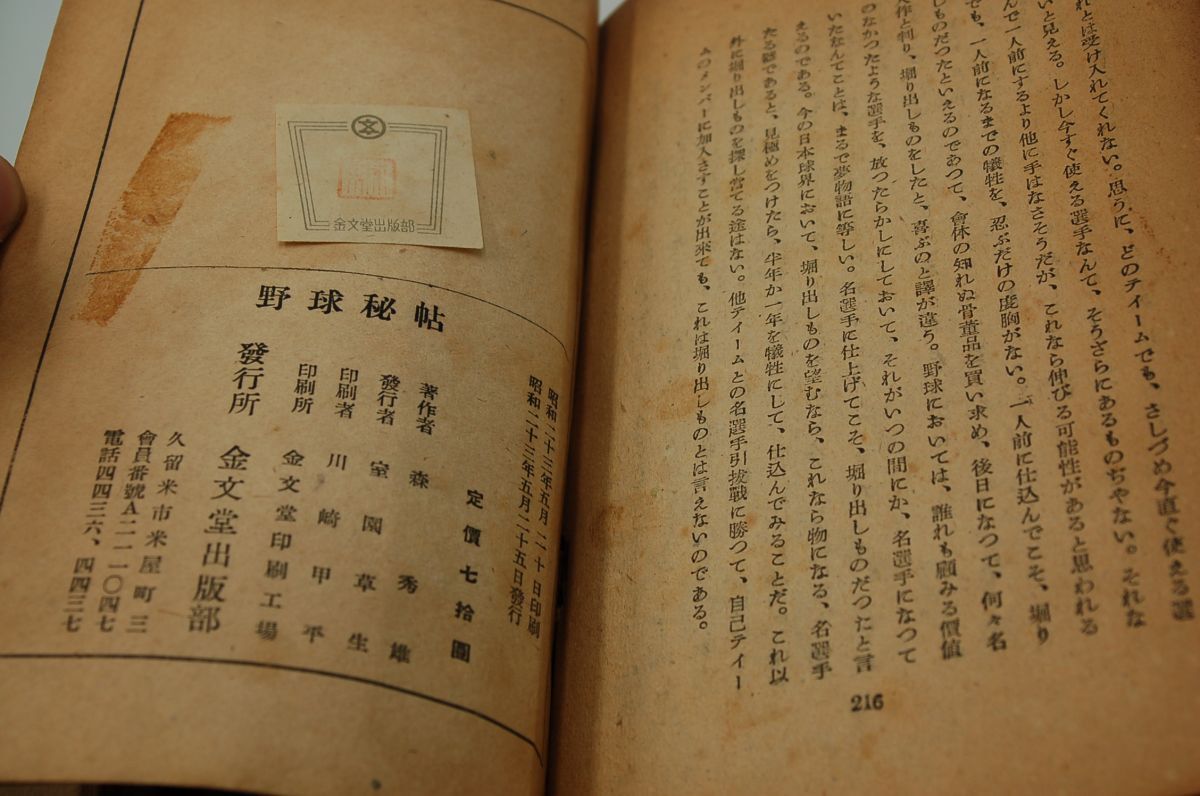 れとは受け入れてくれない。思うに、どのティームでも、さしづめ今直ぐ使える選
いと見える。しかし今すぐ使える選手なんて、そうざらにあるものぢやない。それな
んで一人前にするより他に手はなさそうだが、これなら伸びる可能性があると思われる
でも、一人前になるまでの犠牲を、忍ぶだけの度胸がない。一人前に仕込んでこそ、堀り
しものだつたといえるのであつて、會体の知れぬ骨董品を買い求め、後日になつて、何々名
作と判り、堀り出しものをしたと、喜ぶのと譯が違う。野球においては、誰れも顧みる價値
のなかつたような選手を、放つたらかしにしておいて、それがいつの間にか、名選手になつて
いたなんてことは、まるで夢物語に等しい。名選手に仕上げてこそ、堀り出しものだつたと言
えるのである。今の日本球界において、堀り出しものを望むなら、これなら物になる、名選手
たる器であると、見極めをつけたら、半年か一年を犠牲にして、仕込んでみることだ。これ以
外に堀り出しものを探し當てる途はない。他ティームとの名選手引拔戰に勝つて、自己ティー
ムのメンバーに加入さすことが出來ても、これは堀り出しものとは言えないのである。
216
文
金文堂出版部
野球秘帖
昭和二十三年五月二十日印刷
昭和二十三年五月二十五日發行
定價七拾圓
著作者 森秀雄
發行者 室園草生
印刷者 川崎甲平
印刷所 金文堂印刷工場
發行所 金文堂出版部
久留米市米屋町三
會員番號A二一一〇四七
電話四四三六、四四三七